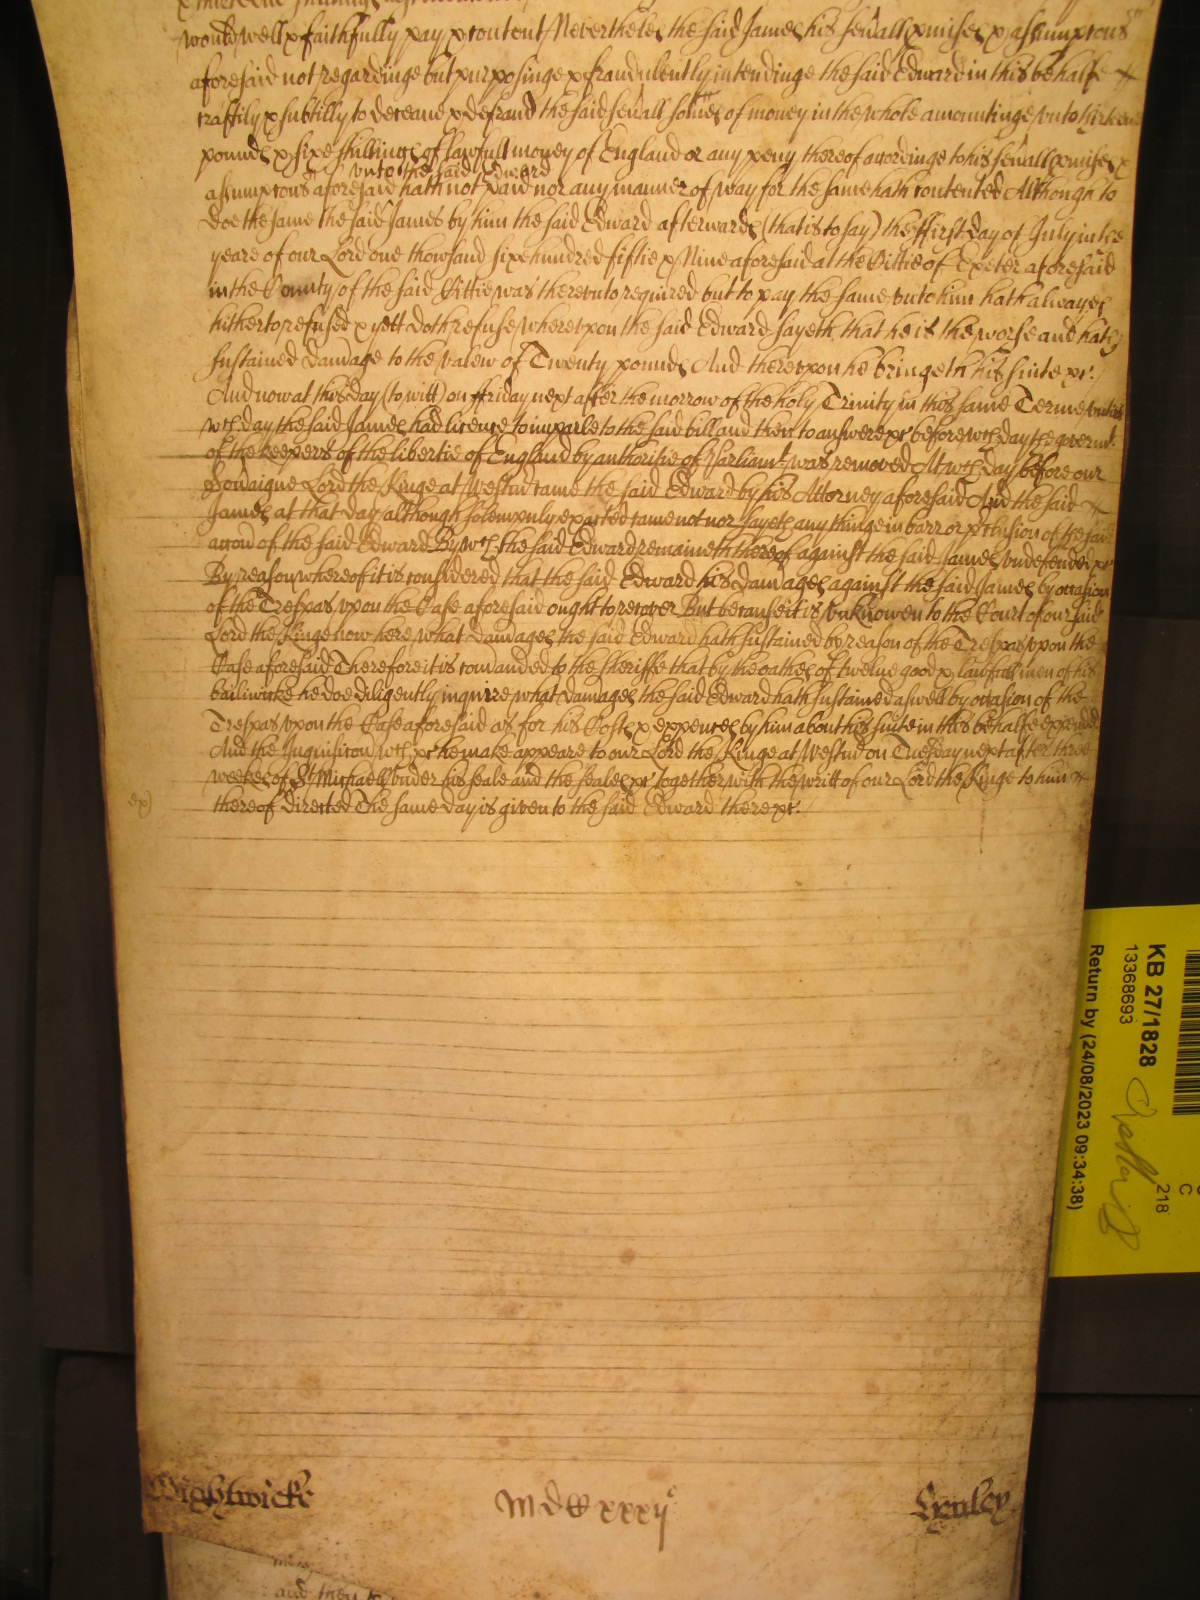 & thirteene shillings
would well & faithfully pay & content Neverthelesse the said James his sev'all p'mises & assumptons
aforesaid not regardinge but purposinge & fraudulently intendinge the said Edward in this behalfe
craftily & subtilly to deceave & defraud the said sev'all somes of money in the whole amountinge unto thirteene
pounds & sixe shillings of lawfull money of England or any peny thereof accordinge to his sev'all p'mises &
unto the said Edward
assumptons aforesaid hath not paid nor any manner of way for the same hath contented Although to
doe the same the said James by him the said Edward afterwards (that is to say) the ffirst day of July in the
yeare of our Lord one thowsand sixe hundred fiftie & Nine aforesaid at the Cittie of Exeter aforesaid
in the County of the said Cittie was thereunto required but to pay the same unto him hath alwayes
hitherto refused & yett doth refuse whereupon the said Edward sayeth that he is the worse and hath
sustained damage to the valew of Twenty pounds And thereupon he bringeth his suite &c.
And now at this day (to witt) on ffriday next after the morrow of the holy Trinity in this same Terme untill
wch day the said James had licence to imparle to the said bill and then to answere &c before wch day the governmt
of the keepers of the libertie of England by authoritie of Parliamt was removed At wch day before our
Sov'aigne Lord the Kinge at Westm' came the said Edward by his Attorney aforesaid And the said
James at that day although solempnly exacted came not nor sayeth any thinge in barr or p'clusion of the said
accon of the said Edward By wch the said Edward remaineth thereof against the said James undefended &c
By reason whereof it is considered that the said Edward his damages against the said James by occasion
of the Trespas upon the Case aforesaid ought to recover But because it is unknowen to the Court of our said
Lord the Kinge now here what damages the said Edward hath sustained by reason of the Trespas upon the
Case aforesaid Therefore it is comanded to the sheriffe that by the oathes of twelve good & lawfull men of his
bailiwicke he doe diligently inquire what damages the said Edward hath sustained aswell by occasion of the
Trespas upon the Case aforesaid as for his Costs & expences by him about his suite in this behalfe expended
And the Inquisicon wch &c he make appeare to our Lord the Kinge at Westm' on Tuesday next after three
weekes of St Michaell under his seale and the seales &c together with the writt of our Lord the Kinge to him
thereof directed The same day is given to the said Edward there &c.
Wightwicke
Henley
KB 27/1828
13368693
Return by (24/08/2023 09:34:38)
218
C